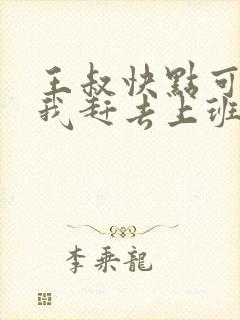 王叔快點可
我赶去上班
李乘龍